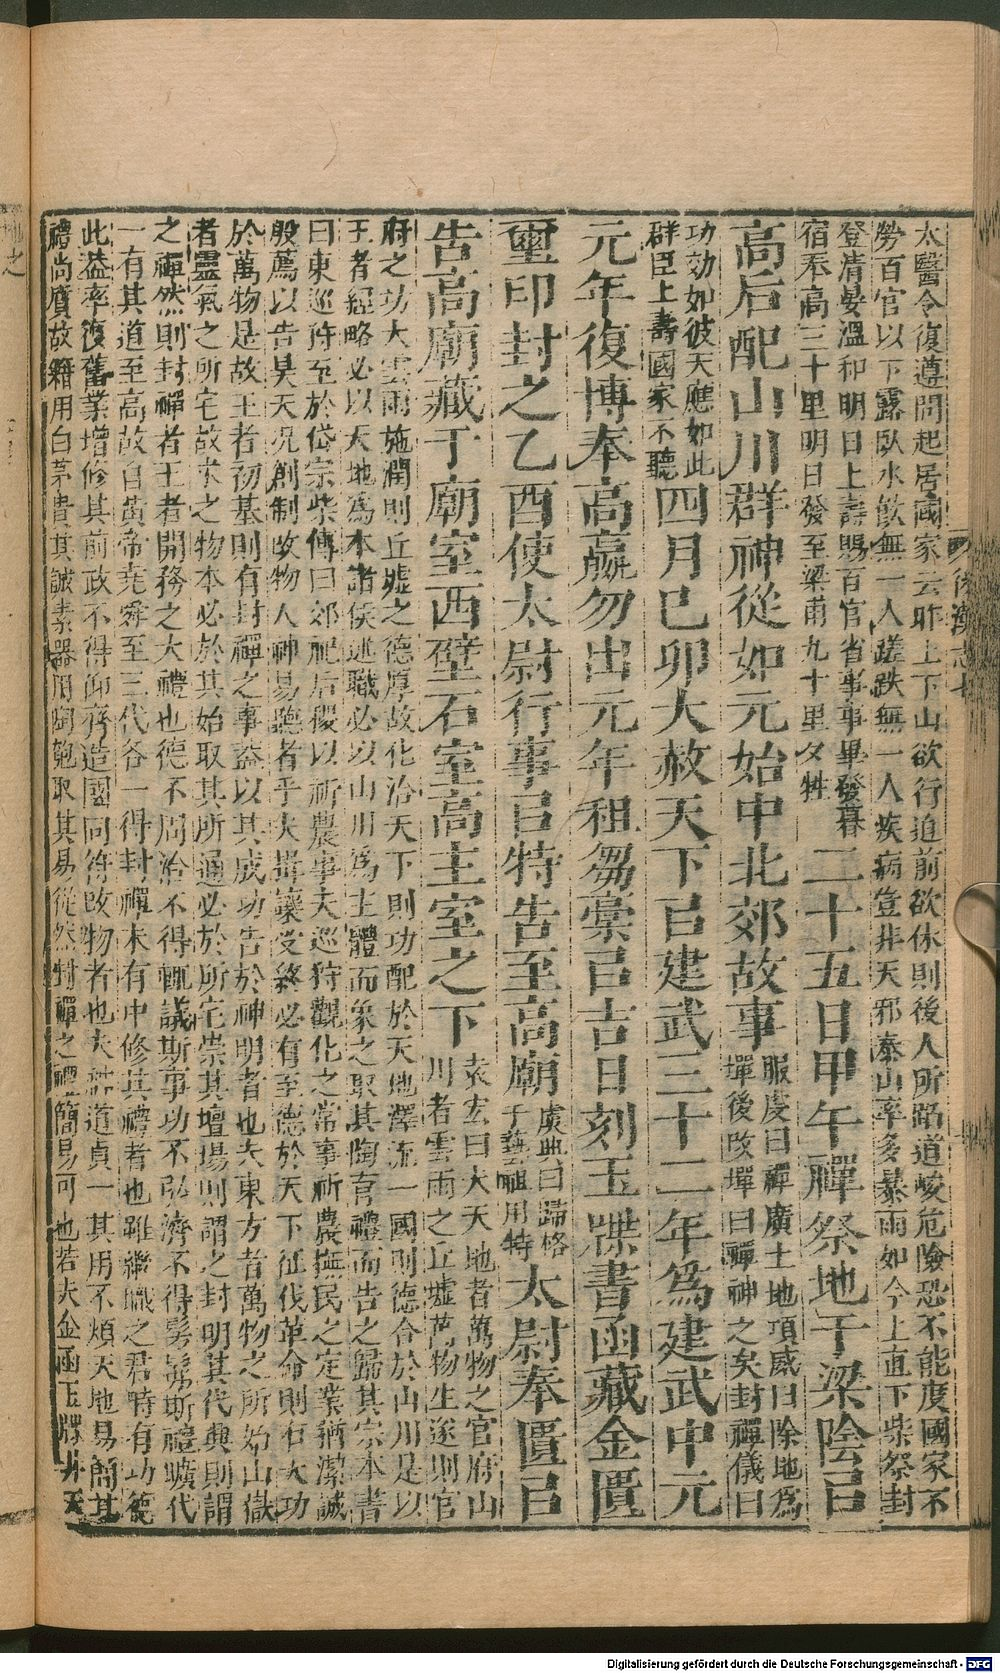 太醫令復遵問起居國家云昨上下山欲行迫前欲休則後人所蹈道峻危險恐不能度國家不
勞百官以下露臥水飲無一人蹉跌無一人疾病豈非天邪泰山率多暴雨如今上直下柴祭封
登清晏溫和明日上壽賜百官省事事畢發暮
宿奉高三十里明日發至梁甫九十里夕牲
二十五日甲午禪祭地于梁陰㠯
高后配山川群神從如元始中北郊故事
服虔曰禪廣土地項威曰除地為
墠後改墠曰禪神之矣封禪儀曰
功効如彼天應如此
群臣上壽國家不聽
四月己卯大赦天下㠯建武三十二年爲建武中元
元年復博奉高嬴勿出元年租芻藁㠯吉日刻玉牒書函藏金匱
璽印封之乙酉使太尉行事㠯特告至高廟
虞典曰歸格
于藝祖用特
太尉奉匱㠯
告高廟藏于廟室西壁石室高主室之下
袁宏曰夫天地者萬物之官府山
川者雲雨之丘墟萬物生遂則官
府之功大雲雨施潤則丘墟之德厚故化洽天下則功配於天地澤流一國則德合於山川是以
王者經略必以天地爲本諸侯述職必以山川爲主體而象之取其陶育禮而告之歸其宗本書
曰東巡狩至於岱宗柴傳曰郊祀后稷以祈農事夫巡狩觀化之常事祈農撫民之定業猶潔誠
殷薦以告昊天况創制改物人神易聽者乎夫揖讓受終必有至德於天下征伐革命則有大功
於萬物是故王者初基則有封禪之事蓋以其成功告於神明者也夫東方者萬物之所始山嶽
者靈氣之所宅故求之物本必於其始取其所通必於所宅崇其壇場則謂之封明其代興則謂
之禪然則封禪者王者開務之大禮也德不周洽不得輒議斯事功不弘濟不得髣髴斯禮曠代
一有其道至高故自黃帝堯舜至三代各一得封禪未有中修其禮者也雖繼職之君時有功德
此蓋率復舊業增修其前政不得仰齊造國同符改物者也夫神道貞一其用不煩天地易簡其
禮尚質故藉用白茅貴其誠素器用陶匏取其易從然封禪之禮簡易可也若夫金函玉牒非天
後漢志七